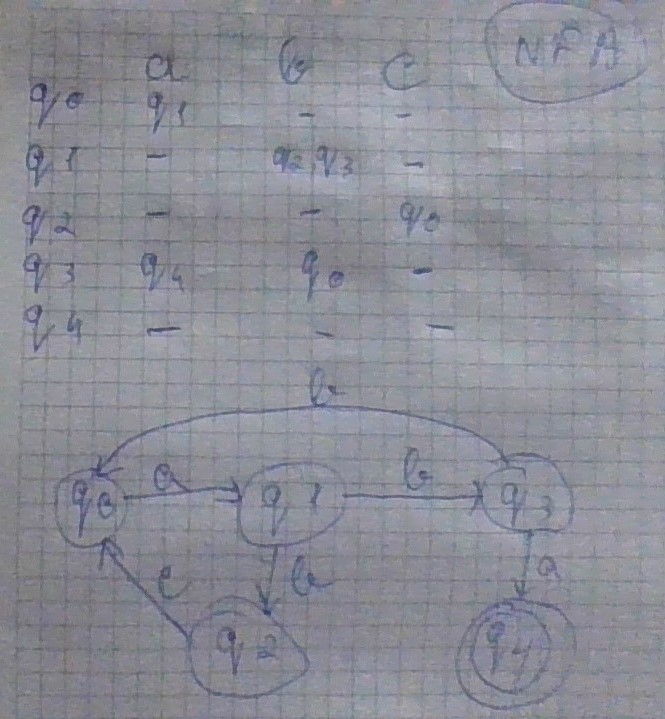 NFA
a b c
q0 q1 - -
q1 - q2,q3 -
q2 - - q0
q3 q4 q0 -
q4 - - -
b
q0 a q1 b q3
c b a
q2 q4